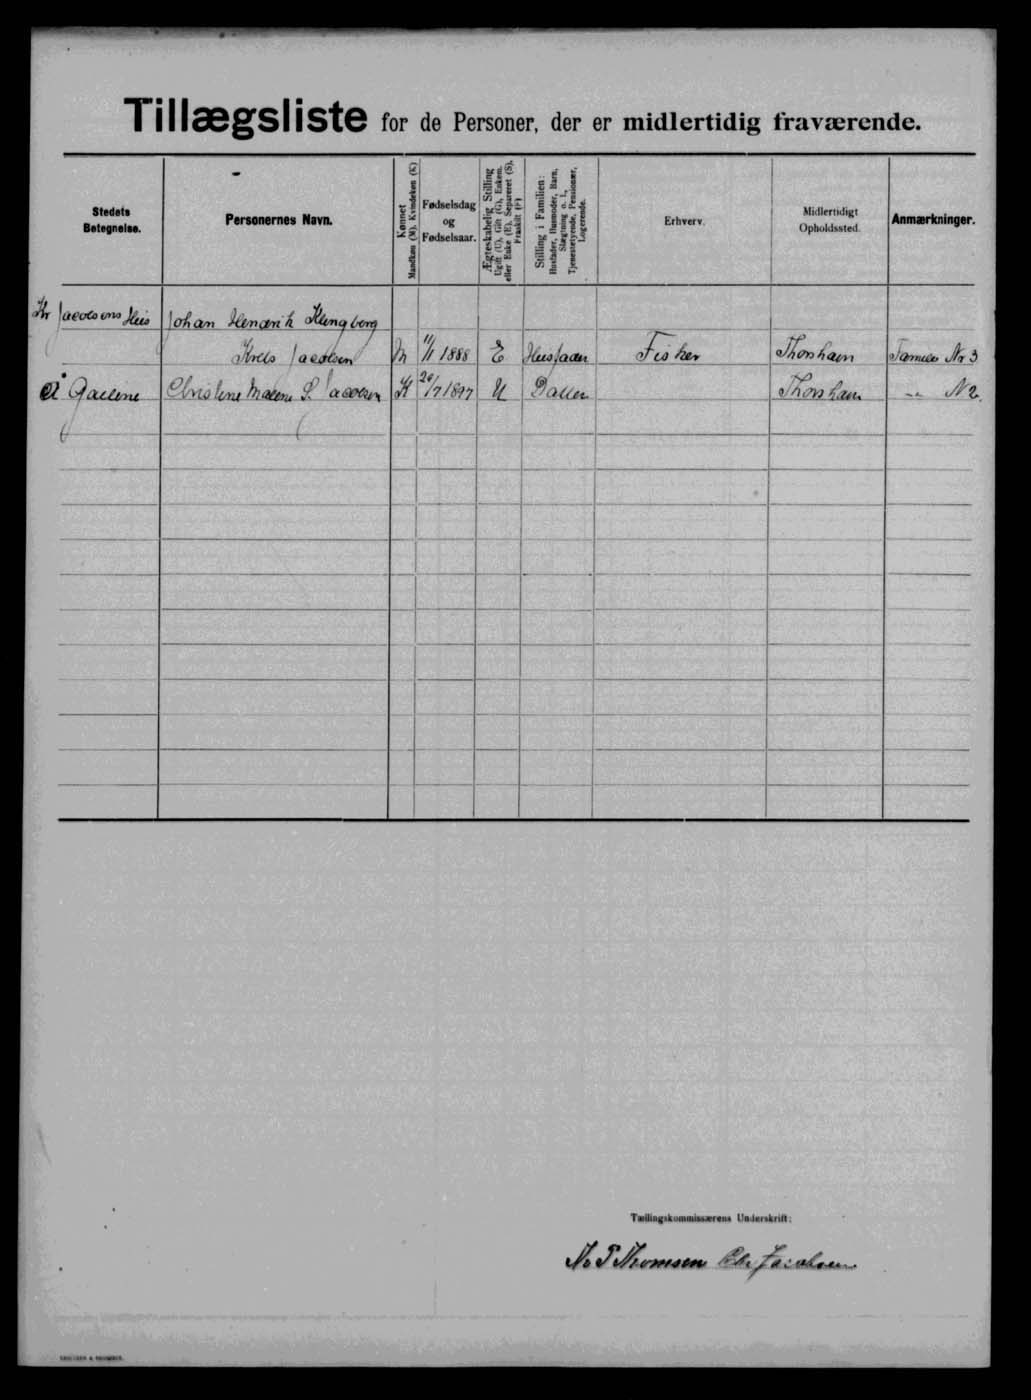 Tillægsliste for de Personer, der er midlertidig fraværende.
Stedets Betegnelse.
Personernes Navn.
Kønnet
Mandkøn (M). Kvindekøn (K)
Fødselsdag
og
Fødselsaar.
Ægteskabelig Stilling
Ugift (U), Gift (G), Enkem.
eller Enke (E), Separeret (S),
Fraskilt (F)
Stilling i Familien:
Husfader, Husmoder, Barn,
Slægtning o. l.,
Tjenestetyende, Pensionær,
Logerende.
Erhverv.
Midlertidigt
Opholdssted.
Anmærkninger.
Jacobsens Hus Johan Hendrik Klingberg
Jacobsen M 11/1 1888 E Husfader Fisker Thorshavn Familie Nr 3
Christine Malene S. Jacobsen K 26/7 1897 U Datter Thorshavn -"- N 2.
Tællingskommissærens Underskrift:
Thomsen Jacobsen